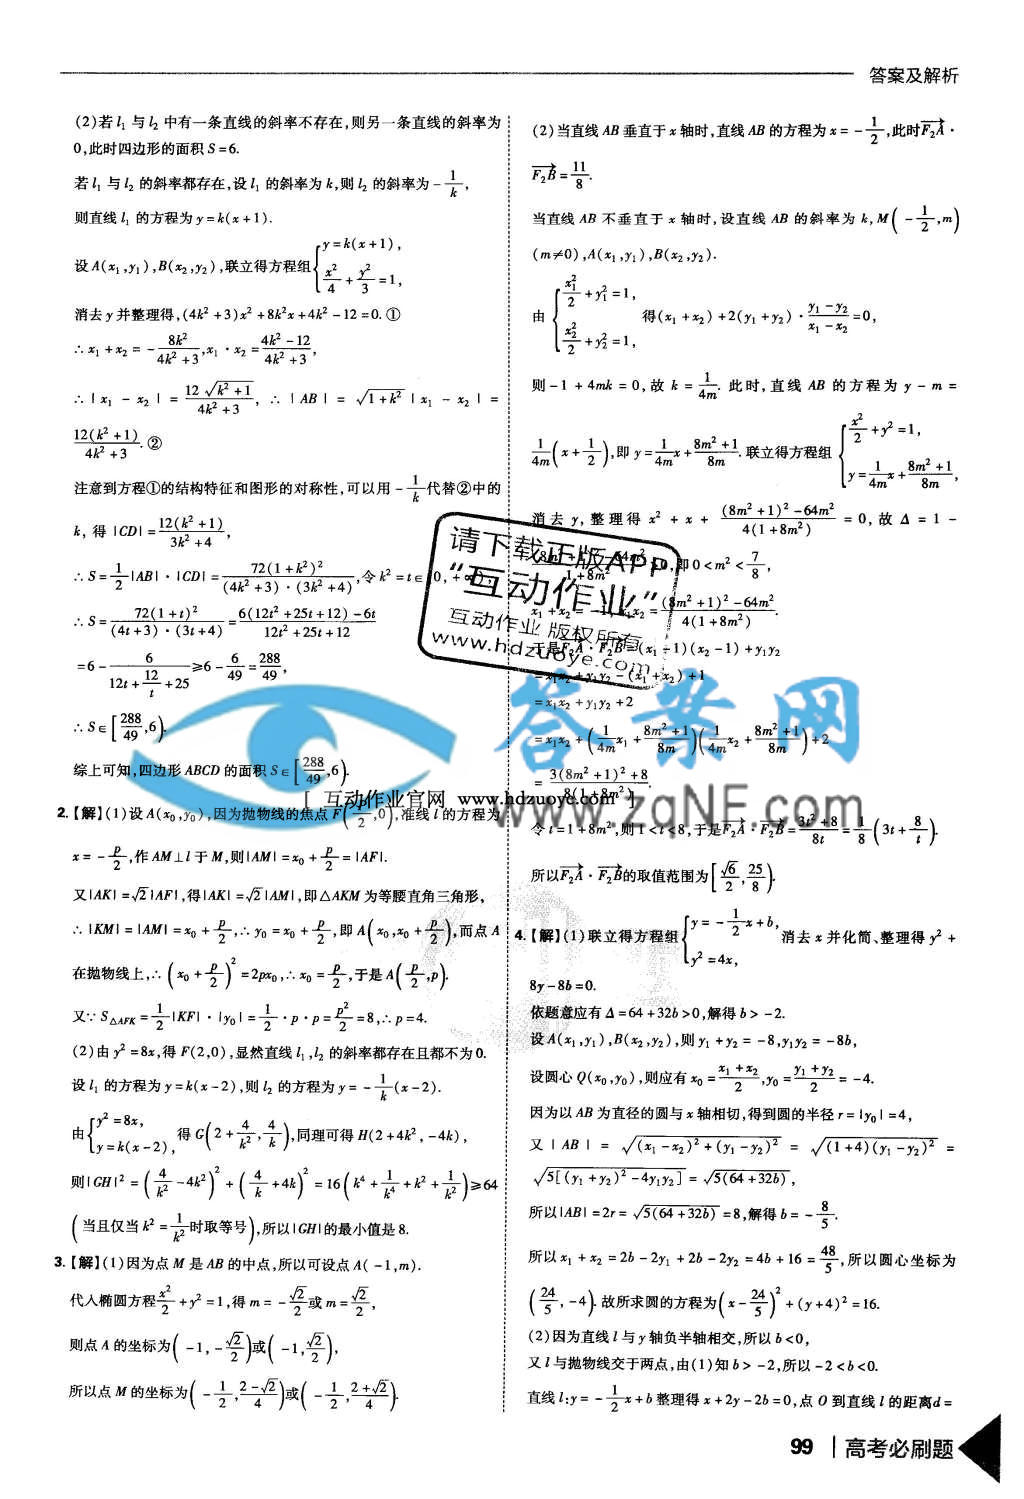 答案及解析
(2)若 l₁ 与 l₂ 中有一条直线的斜率不存在,则另一条直线的斜率为
0,此时四边形的面积 S=6.
若 l₁ 与 l₂ 的斜率都存在,设 l₁ 的斜率为 k,则 l₂ 的斜率为 -1/k,
则直线 l₁ 的方程为 y=k(x+1).
设 A(x₁,y₁),B(x₂,y₂),联立得方程组{y=k(x+1), x²/4+y²/3=1,
消去 y 并整理得,(4k²+3)x²+8k²x+4k²-12=0.①
∴x₁+x₂=-8k²/(4k²+3),x₁·x₂=(4k²-12)/(4k²+3),
∴|x₁-x₂|=12√(k²+1)/(4k²+3),∴|AB|=√(1+k²)|x₁-x₂|=
12(k²+1)/(4k²+3).②
注意到方程①的结构特征和图形的对称性,可以用 -1/k 代替②中的
k,得|CD|=12(k²+1)/(3k²+4),
∴S=1/2|AB|·|CD|=72(1+k²)²/((4k²+3)·(3k²+4)),令 k²=t∈(0,+∞),
∴S=72(1+t)²/((4t+3)·(3t+4))=(6(12t²+25t+12)-6t)/(12t²+25t+12)
=6-6/(12t+12/t+25)≥6-6/49=288/49,
∴S∈[288/49,6).
综上可知,四边形 ABCD 的面积 S∈[288/49,6).
2.【解】(1)设 A(x₀,y₀),因为抛物线的焦点 F(p/2,0),准线 l 的方程为
x=-p/2,作 AM⊥l 于 M,则|AM|=x₀+p/2=|AF|.
又|AK|=√2|AF|,得|AK|=√2|AM|,即△AKM 为等腰直角三角形,
∴|KM|=|AM|=x₀+p/2,∴y₀=x₀+p/2,即 A(x₀,x₀+p/2),而点 A
在抛物线上,∴(x₀+p/2)²=2px₀,∴x₀=p/2,于是 A(p/2,p).
又∵S△AFK=1/2|KF|·|y₀|=1/2·p·p=p²/2=8,∴p=4.
(2)由 y²=8x,得 F(2,0),显然直线 l₁,l₂ 的斜率都存在且都不为 0.
设 l₁ 的方程为 y=k(x-2),则 l₂ 的方程为 y=-1/k(x-2).
由{y²=8x, y=k(x-2),得 G(2+4/k²,4/k),同理可得 H(2+4k²,-4k),
则|GH|²=(4/k²-4k²)²+(4/k+4k)²=16(k⁴+1/k⁴+k²+1/k²)≥64
(当且仅当 k²=1/k²时取等号),所以|GH|的最小值是 8.
3.【解】(1)因为点 M 是 AB 的中点,所以可设点 A(-1,m).
代入椭圆方程x²/2+y²=1,得 m=-√2/2或 m=√2/2,
则点 A 的坐标为(-1,-√2/2)或(-1,√2/2),
所以点 M 的坐标为(-1/2,(2-√2)/4)或(-1/2,(2+√2)/4).
(2)当直线 AB 垂直于 x 轴时,直线 AB 的方程为 x=-1/2,此时F₂A·
F₂B=11/8.
当直线 AB 不垂直于 x 轴时,设直线 AB 的斜率为 k,M(-1/2,m)
(m≠0),A(x₁,y₁),B(x₂,y₂).
由{x₁²/2+y₁²=1, x₂²/2+y₂²=1,得(x₁+x₂)+2(y₁+y₂)·(y₁-y₂)/(x₁-x₂)=0,
则-1+4mk=0,故 k=1/4m.此时,直线 AB 的方程为 y-m=
1/4m(x+1/2),即 y=1/4m x+(8m²+1)/8m.联立得方程组{x²/2+y²=1, y=1/4m x+(8m²+1)/8m,
消去 y,整理得 x²+x+((8m²+1)²-64m²)/(4(1+8m²))=0,故 Δ=1-
0,即 0<m²<7/8,
x₁+x₂=-1,x₁x₂=((8m²+1)²-64m²)/(4(1+8m²))
于是F₂A·F₂B=(x₁-1)(x₂-1)+y₁y₂
=x₁x₂+y₁y₂-(x₁+x₂)+1
=x₁x₂+y₁y₂+2
=x₁x₂+(1/4m x₁+(8m²+1)/8m)(1/4m x₂+(8m²+1)/8m)+2
=(3(8m²+1)²+8)/(8(1+8m²)).
令 t=1+8m²,则 1<t<8,于是F₂A·F₂B=(3t²+8)/8t=1/8(3t+8/t).
所以F₂A·F₂B的取值范围为[√6/2,25/8).
4.【解】(1)联立得方程组{y=-1/2x+b, y²=4x,消去 x 并化简、整理得 y²+
8y-8b=0.
依题意应有 Δ=64+32b>0,解得 b>-2.
设 A(x₁,y₁),B(x₂,y₂),则 y₁+y₂=-8,y₁y₂=-8b,
设圆心 Q(x₀,y₀),则应有 x₀=(x₁+x₂)/2,y₀=(y₁+y₂)/2=-4.
因为以 AB 为直径的圆与 x 轴相切,得到圆的半径 r=|y₀|=4,
又|AB|=√((x₁-x₂)²+(y₁-y₂)²)=√((1+4)(y₁-y₂)²)=
√(5[(y₁+y₂)²-4y₁y₂])=√(5(64+32b)),
所以|AB|=2r=√(5(64+32b))=8,解得 b=-8/5.
所以 x₁+x₂=2b-2y₁+2b-2y₂=4b+16=48/5,所以圆心坐标为
(24/5,-4).故所求圆的方程为(x-24/5)²+(y+4)²=16.
(2)因为直线 l 与 y 轴负半轴相交,所以 b<0,
又 l 与抛物线交于两点,由(1)知 b>-2,所以-2<b<0.
直线 l:y=-1/2x+b 整理得 x+2y-2b=0,点 O 到直线 l 的距离d=
请下载正版APP
“互动作业”
互动作业 版权所有
www.hdzuoye.com
答案网
www.zqNF.com
[ 互动作业官网 www.hdzuoye.com ]
99 | 高考必刷题